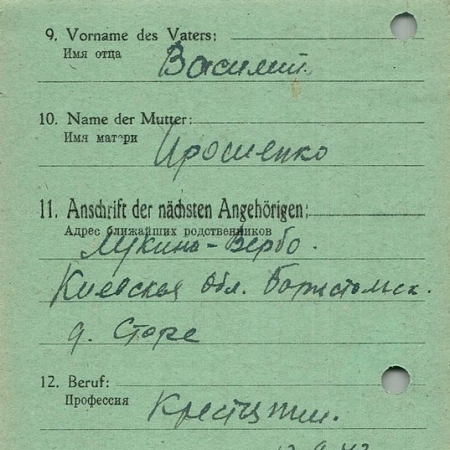 9. Vorname des Vaters:
Имя отца
Василий
10. Name der Mutter:
Имя матери
Ярошенко
11. Anschrift der nächsten Angehörigen:
Адрес ближайших родственников
Лукина-Вербо.
Киевская обл.
д. Старе
12. Beruf:
Профессия